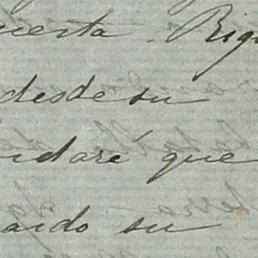 uesta. Rig
desde su
idaré que
aido su